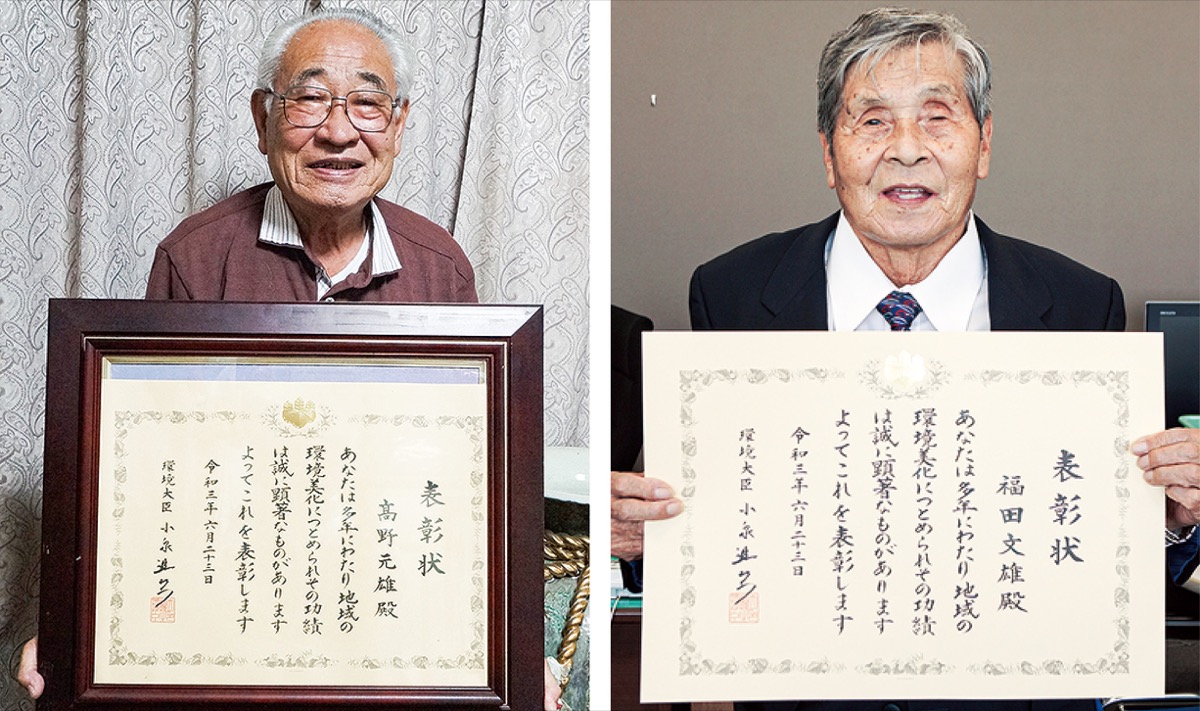 表彰状
髙野元雄殿
あなたは多年にわたり地域の
環境美化につとめられその功績
は誠に顕著なものがあります
よってこれを表彰します
令和三年六月二十三日
環境大臣 小泉進次郎
表彰状
福田文雄殿
あなたは多年にわたり地域の
環境美化につとめられその功績
は誠に顕著なものがあります
よってこれを表彰します
令和三年六月二十三日
環境大臣 小泉進次郎